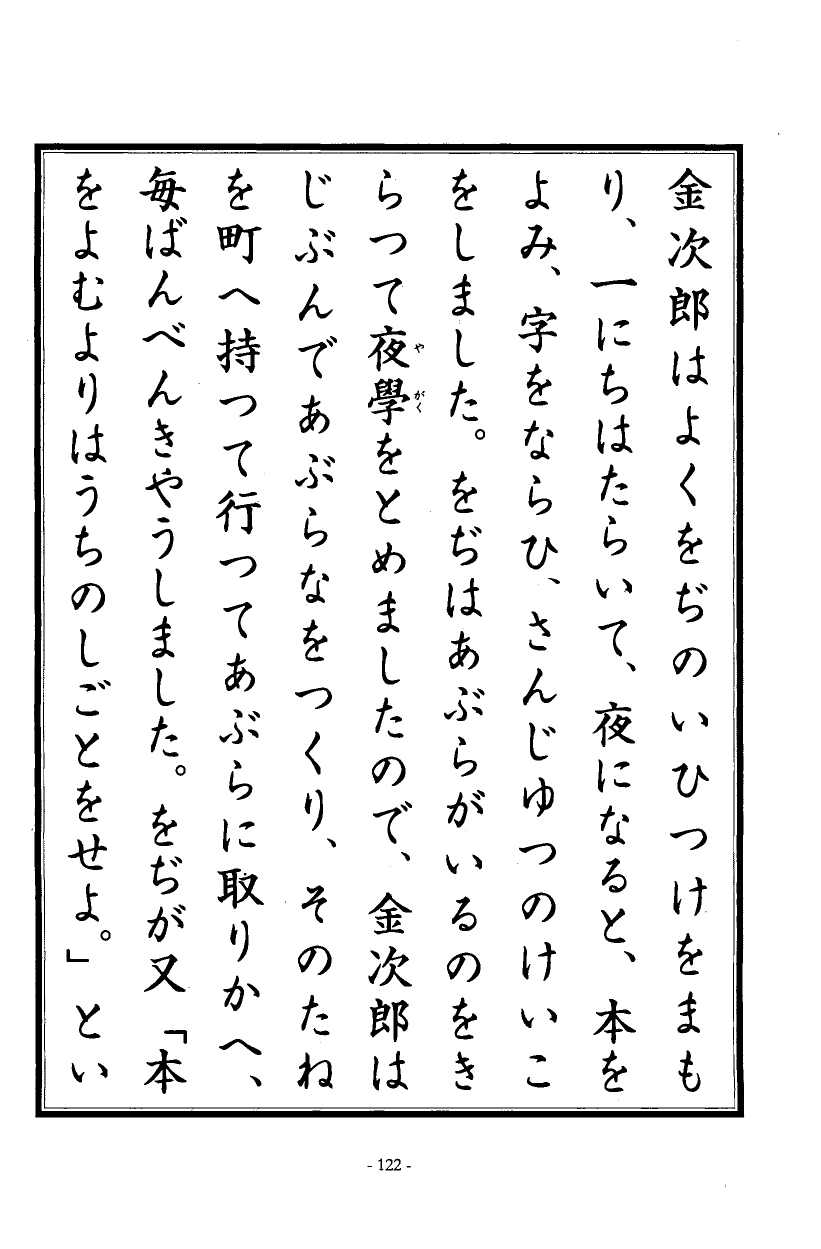 金次郎はよくをぢのいひつけをまも
り、一にちはたらいて、夜になると、本を
よみ、字をならひ、さんじゆつのけいこ
をしました。をぢはあぶらがいるのをき
らつて夜學をとめましたので、金次郎は
やがく
じぶんであぶらなをつくり、そのたね
を町へ持つて行つてあぶらに取りかへ、
毎ばんべんきやうしました。をぢが又「本
をよむよりはうちのしごとをせよ。」とい
- 122 -